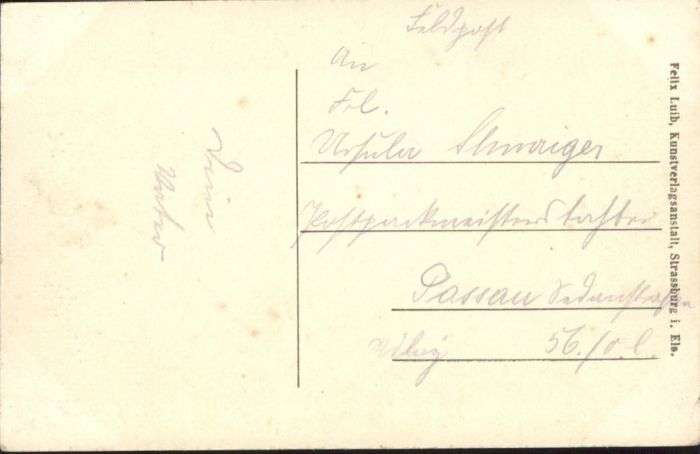 Feldpost
An
Frl.
Ursula Schwaiger
Postpackmeisterstochter
Passau Sedanstraße
56./0. l.
Dein
Vater
Felix Luib, Kunstverlagsanstalt, Strassburg i. Els.